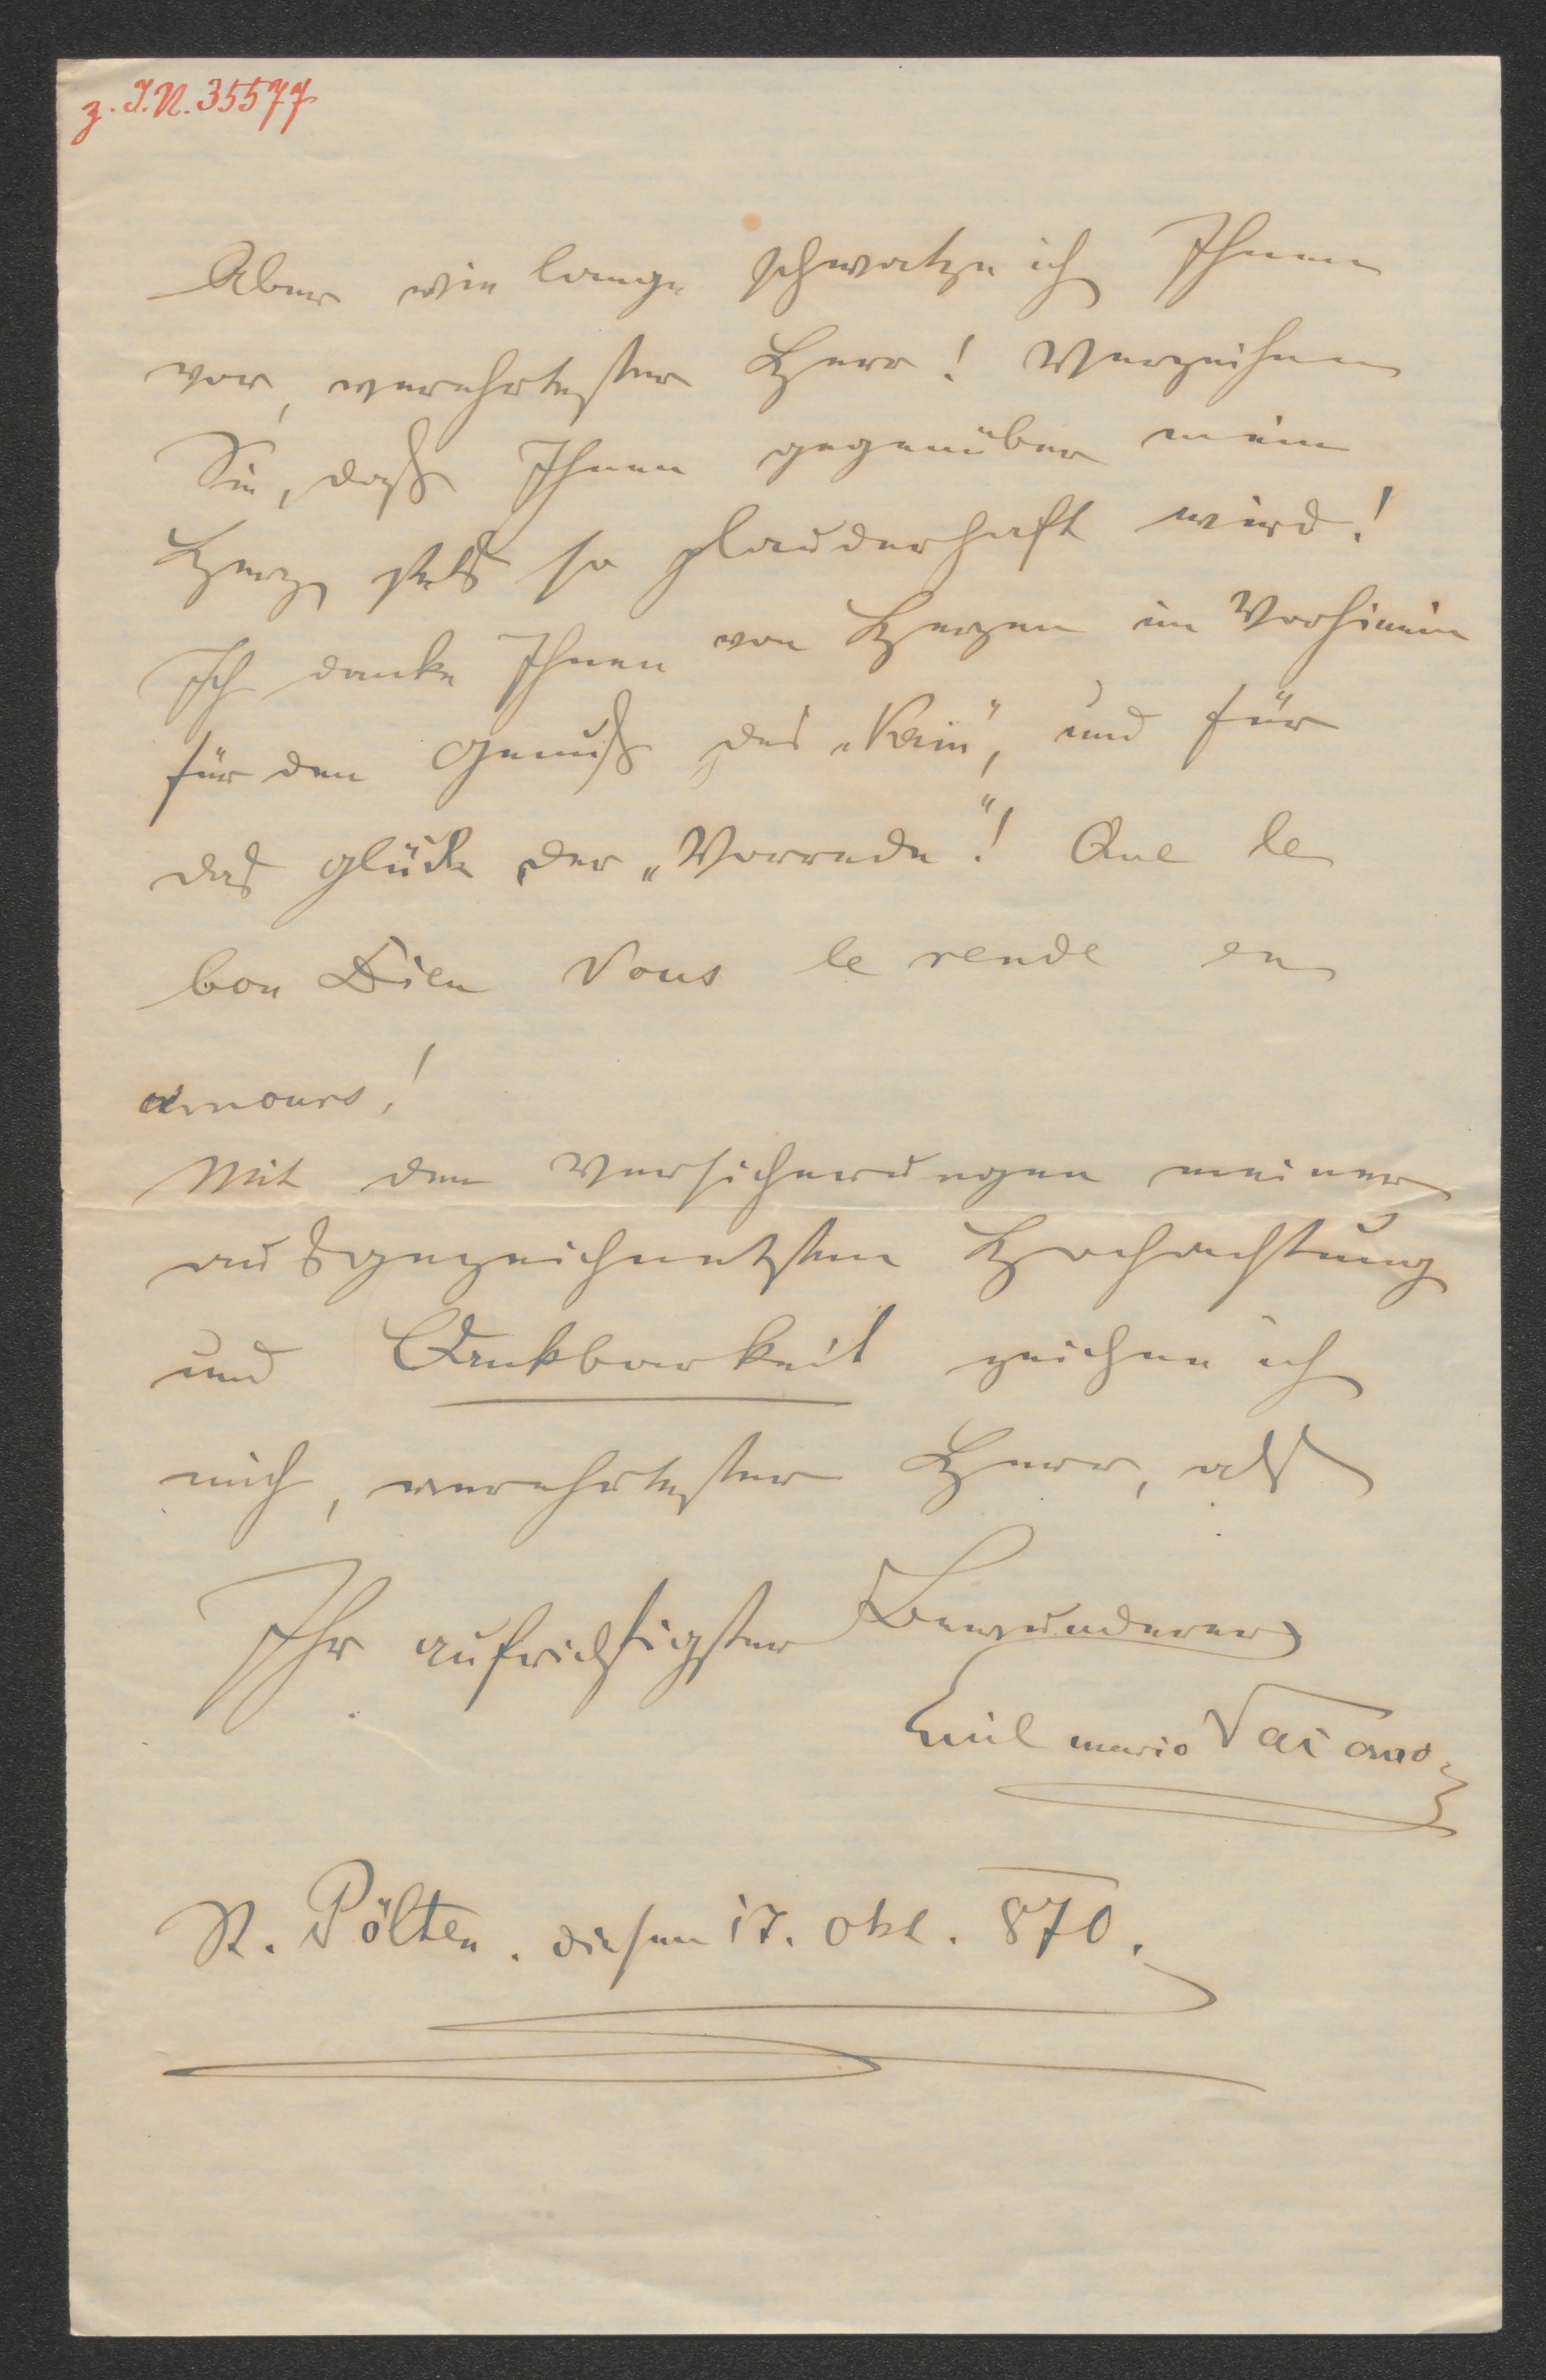 z. I.N. 35577
Aber wie lange schwatze ich Ihnen
vor, verehrtester Herr! Verzeihen
Sie, daß Ihnen gegenüber mein
Herz stets so plauderhaft wird!
Ich danke Ihnen von Herzen im Vorhinein
für den Genuß des „Kain", und für
das Glück der „Vorrede"! Que le
bon Dieu Vous le rende en
amours!
Mit den Versicherungen meiner
ausgezeichnetsten Hochachtung
und Dankbarkeit zeichne ich
mich, verehrtester Herr, als
Ihr aufrichtigster Bewunderer
Emil Mario Vacano
St. Pölten. diesen 17. Okt. 870.